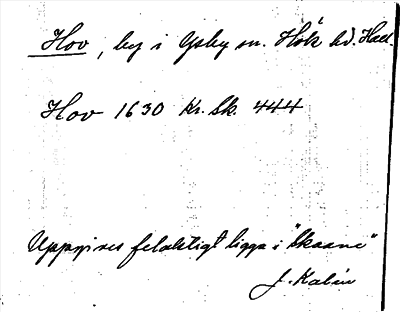 Hov, by i Ysby sn. Hök hd. Hall.
Hov 1630 Kr. Sk. 444
Uppgives felaktigt ligga i "Skaane"
J. Kalén